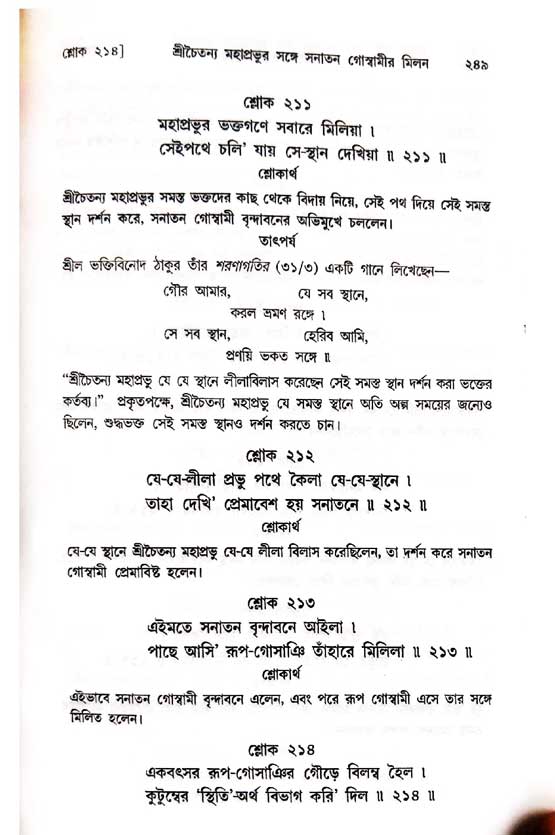 শ্লোক ২১৪]
শ্রীচৈতন্য মহাপ্রভুর সঙ্গে সনাতন গোস্বামীর মিলন
২৪৯
শ্লোক ২১১
মহাপ্রভুর ভক্তগণে সবারে মিলিয়া ।
সেইপথে চলি' যায় সে-স্থান দেখিয়া ॥ ২১১ ॥
শ্লোকার্থ
শ্রীচৈতন্য মহাপ্রভুর সমস্ত ভক্তদের কাছ থেকে বিদায় নিয়ে, সেই পথ দিয়ে সেই সমস্ত
স্থান দর্শন করে, সনাতন গোস্বামী বৃন্দাবনের অভিমুখে চললেন।
তাৎপর্য
শ্রীল ভক্তিবিনোদ ঠাকুর তাঁর শরণাগতির (৩১/৩) একটি গানে লিখেছেন—
গৌর আমার, যে সব স্থানে,
করল ভ্রমণ রঙ্গে ।
সে সব স্থান, হেরিব আমি,
প্রণয়ি ভকত সঙ্গে ॥
“শ্রীচৈতন্য মহাপ্রভু যে যে স্থানে লীলাবিলাস করেছেন সেই সমস্ত স্থান দর্শন করা ভক্তের
কর্তব্য।” প্রকৃতপক্ষে, শ্রীচৈতন্য মহাপ্রভু যে সমস্ত স্থানে অতি অল্প সময়ের জন্যেও
ছিলেন, শুদ্ধভক্ত সেই সমস্ত স্থানও দর্শন করতে চান।
শ্লোক ২১২
যে-যে-লীলা প্রভু পথে কৈলা যে-যে-স্থানে ।
তাহা দেখি' প্রেমাবেশ হয় সনাতনে ॥ ২১২ ॥
শ্লোকার্থ
যে-যে স্থানে শ্রীচৈতন্য মহাপ্রভু যে-যে লীলা বিলাস করেছিলেন, তা দর্শন করে সনাতন
গোস্বামী প্রেমাবিষ্ট হলেন।
শ্লোক ২১৩
এইমতে সনাতন বৃন্দাবনে আইলা ।
পাছে আসি' রূপ-গোসাঞি তাঁহারে মিলিলা ॥ ২১৩ ॥
শ্লোকার্থ
এইভাবে সনাতন গোস্বামী বৃন্দাবনে এলেন, এবং পরে রূপ গোস্বামী এসে তার সঙ্গে
মিলিত হলেন।
শ্লোক ২১৪
একবৎসর রূপ-গোসাঞির গৌড়ে বিলম্ব হৈল ।
কুটুম্বের ‘স্থিতি’-অর্থ বিভাগ করি' দিল ॥ ২১৪ ॥